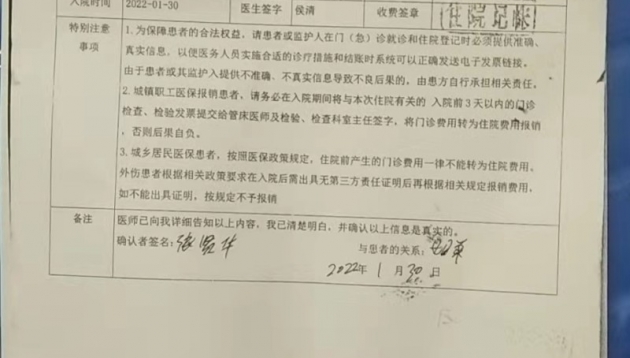 入院时间 2022-01-30 医生签字 侯清 收费签章 住院记帐
特别注意事项
1.为保障患者的合法权益，请患者或监护人在门（急）诊就诊和住院登记时必须提供准确、
真实信息，以便医务人员实施合适的诊疗措施和结账时系统可以正确发送电子发票链接。
由于患者或其监护人提供不准确、不真实信息导致不良后果的，由患方自行承担相关责任。
2.城镇职工医保报销患者，请务必在入院期间将与本次住院有关的 入院前3天以内的门诊
检查、检验发票提交给管床医师及检验、检查科室主任签字，将门诊费用转为住院费用报销
，否则后果自负。
3.城乡居民医保患者，按照医保政策规定，住院前产生的门诊费用一律不能转为住院费用。
外伤患者根据相关政策要求在入院后需出具无第三方责任证明后再根据相关规定报销费用，
如不能出具证明，按规定不予报销
备注
医师已向我详细告知以上内容，我已清楚明白，并确认以上信息是真实的。
确认者签名： 与患者的关系：
2022年 1月 30日